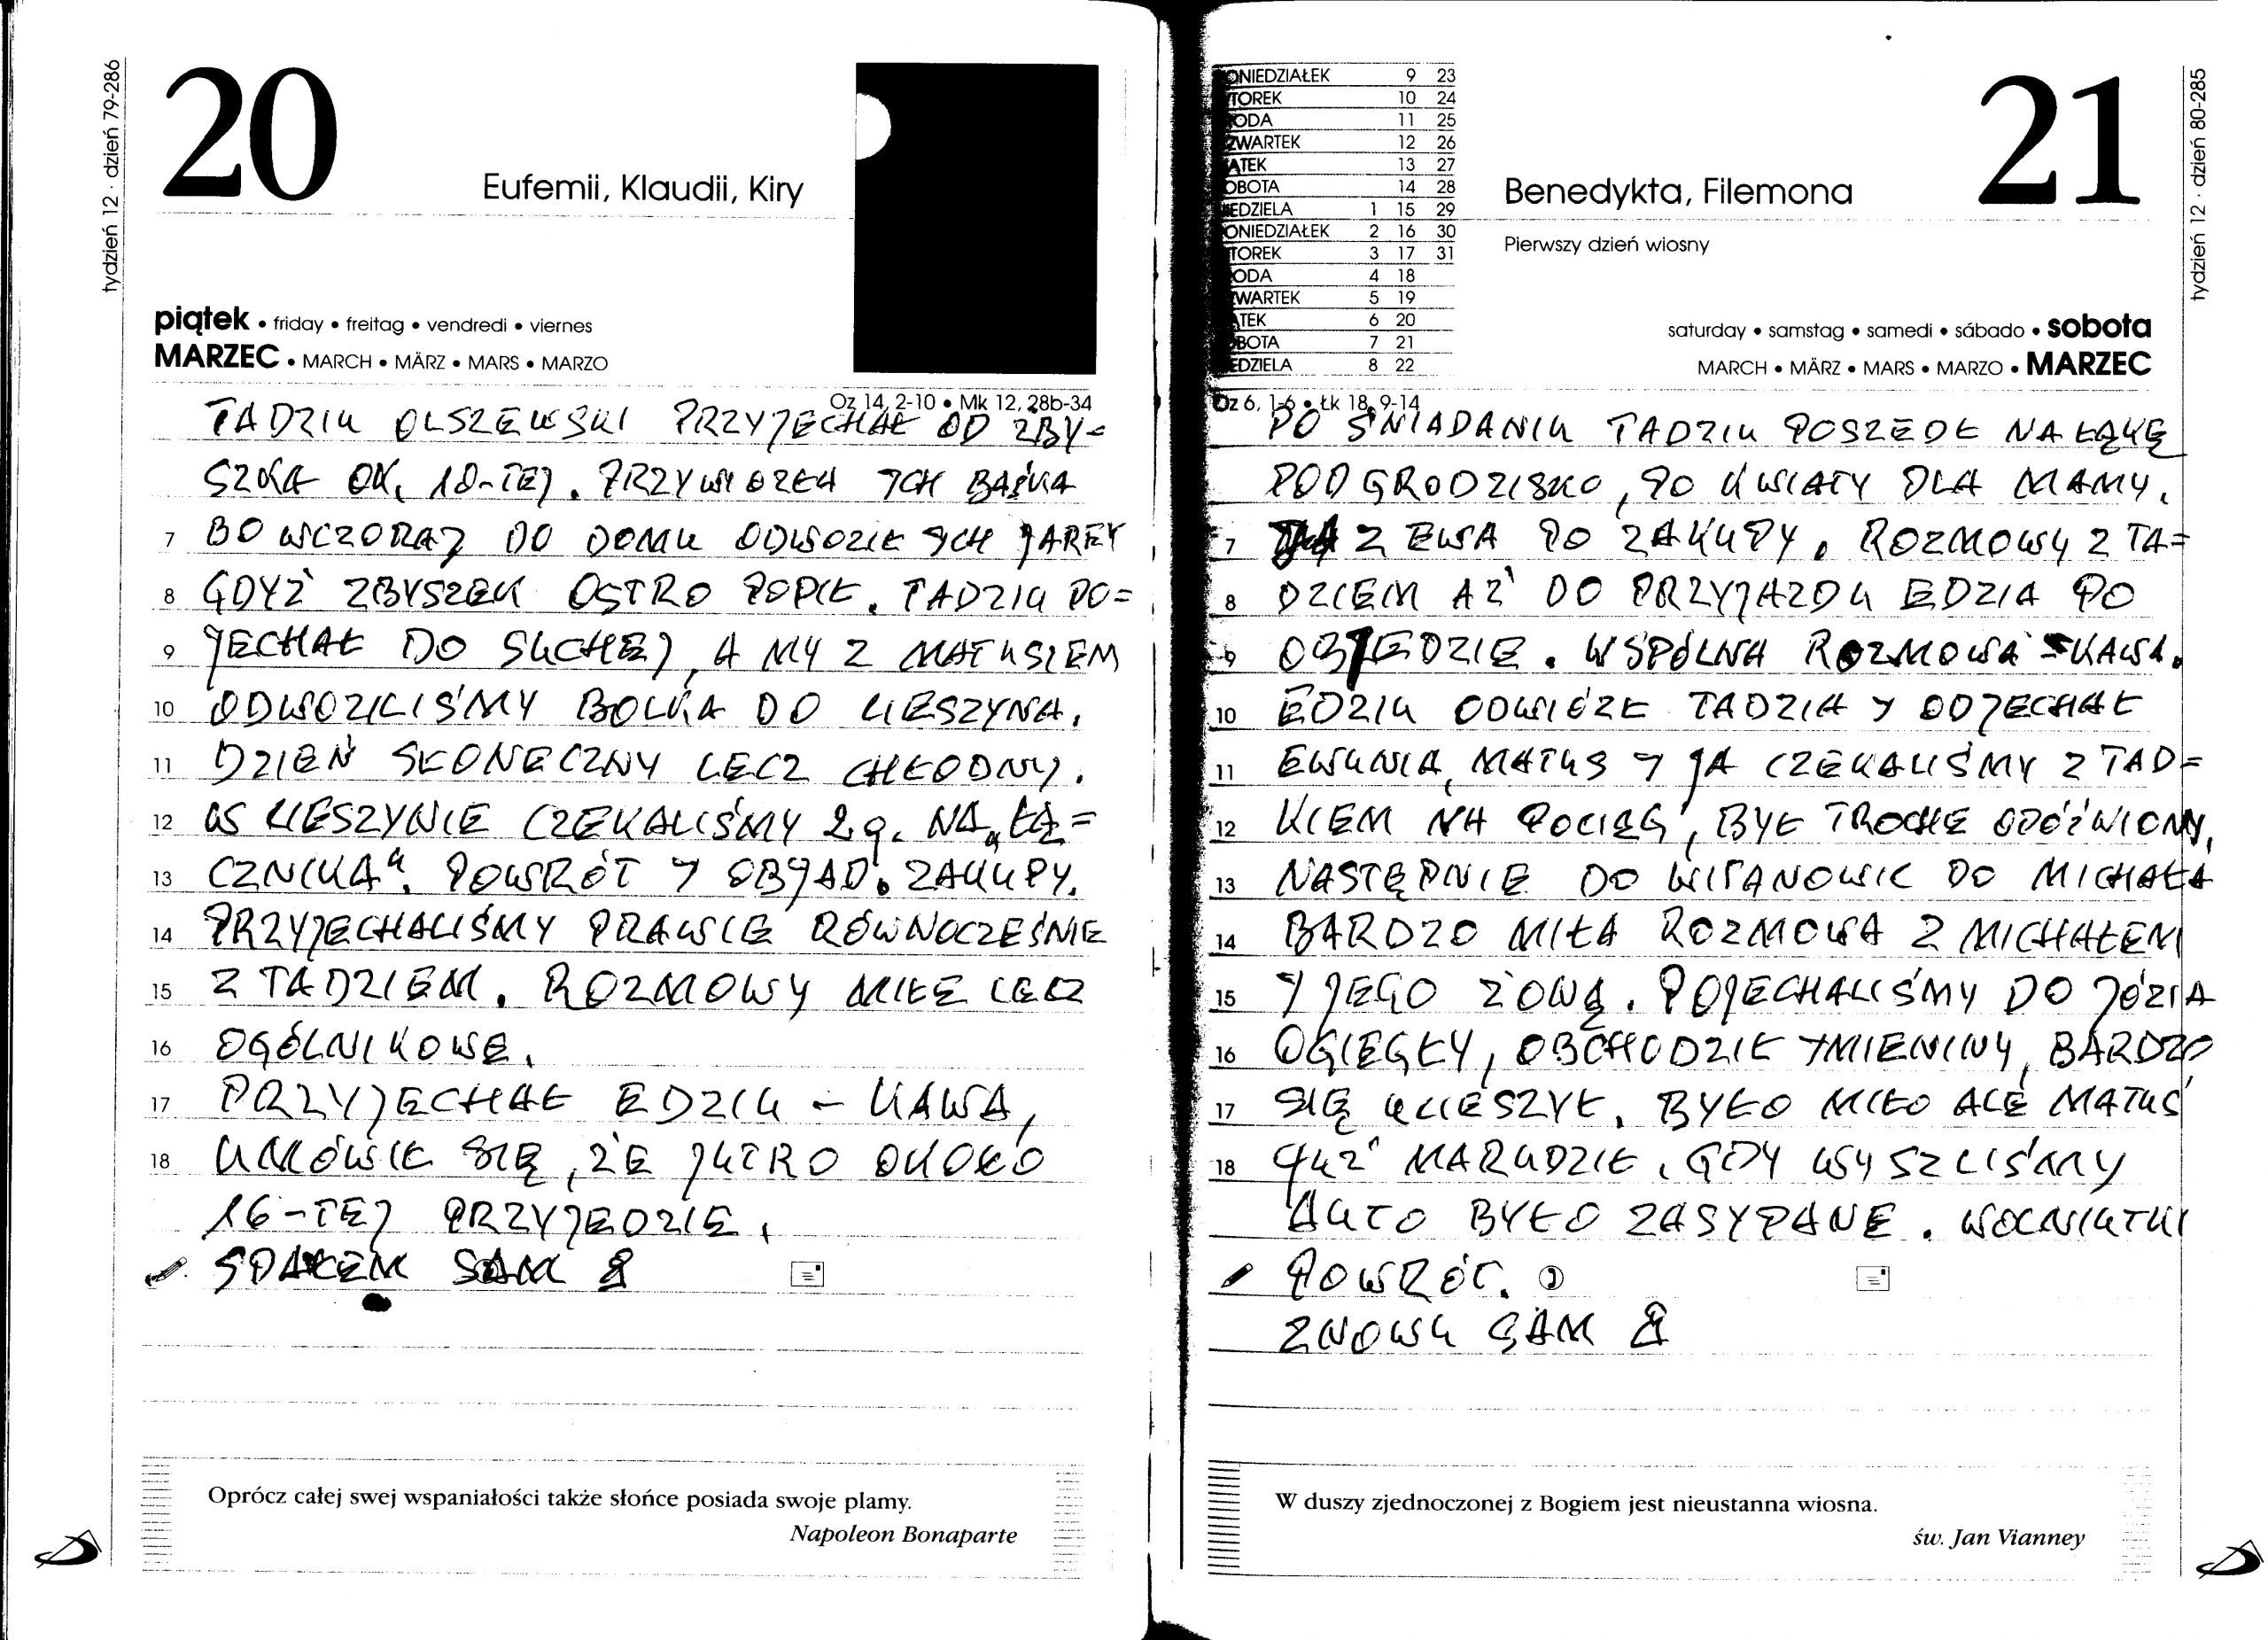 tydzień 12 · dzień 79-286
20
Eufemii, Klaudii, Kiry
piątek • friday • freitag • vendredi • viernes
MARZEC • MARCH • MÄRZ • MARS • MARZO
Oz 14, 2-10 • Mk 12, 28b-34
TADZIU OLSZEWSKI PRZYJECHAŁ OD ZBY=
SZKA OK. 10-TEJ. PRZYWIOZŁA ICH BAŚKA
7 BO WCZORAJ DO DOMU ODWOZIŁ ICH JAREK
8 GDYŻ ZBYSZEK OSTRO POPIŁ. TADZIU PO=
9 JECHAŁ DO SUCHEJ, A MY Z MATUSIEM
10 ODWOZILIŚMY BOLKA DO CIESZYNA.
11 DZIEŃ SŁONECZNY LECZ CHŁODNY.
12 W CIESZYNIE CZEKALIŚMY 2 g. NA „ŁĄ=
13 CZNIKA". POWRÓT I OBJAD. ZAKUPY.
14 PRZYJECHALIŚMY PRAWIE RÓWNOCZEŚNIE
15 Z TADZIEM. ROZMOWY MIŁE LECZ
16 OGÓLNIKOWE.
17 PRZYJECHAŁ EDZIU - KAWA,
18 UMÓWIŁ SIĘ, ŻE JUTRO OKOŁO
16-TEJ PRZYJEDZIE.
SPAŁEM SAM
Oprócz całej swej wspaniałości także słońce posiada swoje plamy.
Napoleon Bonaparte
ONIEDZIAŁEK 9 23
TOREK 10 24
ODA 11 25
ZWARTEK 12 26
ĄTEK 13 27
OBOTA 14 28
IEDZIELA 1 15 29
ONIEDZIAŁEK 2 16 30
TOREK 3 17 31
ODA 4 18
WARTEK 5 19
ĄTEK 6 20
OBOTA 7 21
EDZIELA 8 22
Benedykta, Filemona
21
Pierwszy dzień wiosny
tydzień 12 · dzień 80-285
saturday • samstag • samedi • sábado • sobota
MARCH • MÄRZ • MARS • MARZO • MARZEC
Oz 6, 1-6 • Łk 18, 9-14
PO ŚNIADANIU TADZIU POSZEDŁ NA ŁĄKĘ
POD GRODZISKO, PO KWIATY DLA MAMY.
7 JA Z EWA PO ZAKUPY. ROZMOWY Z TA=
8 DZIEM AŻ DO PRZYJAZDU EDZIA PO
9 OBJEDZIE. WSPÓLNA ROZMOWA KAWA.
10 EDZIU ODWIÓZŁ TADZIA I ODJECHAŁ
11 EWUNIA, MATUS I JA CZEKALIŚMY Z TAD=
12 KIEM NA POCIĄG, BYŁ TROCHE OPÓŹNIONY,
13 NASTĘPNIE DO WITANOWIC DO MICHAŁA
14 BARDZO MIŁA ROZMOWA Z MICHAŁEM
15 I JEGO ŻONĄ. POJECHALIŚMY DO JÓZIA
16 OGIEGŁY, OBCHODZIŁ IMIENINY, BARDZO
17 SIĘ UCIESZYŁ. BYŁO MIŁO ALE MATUŚ
18 JUŻ MARUDZIŁ. GDY WYSZLIŚMY
AUTO BYŁO ZASYPANE. WOLNIUTKI
POWRÓT.
ZNOWU SAM
W duszy zjednoczonej z Bogiem jest nieustanna wiosna.
św. Jan Vianney